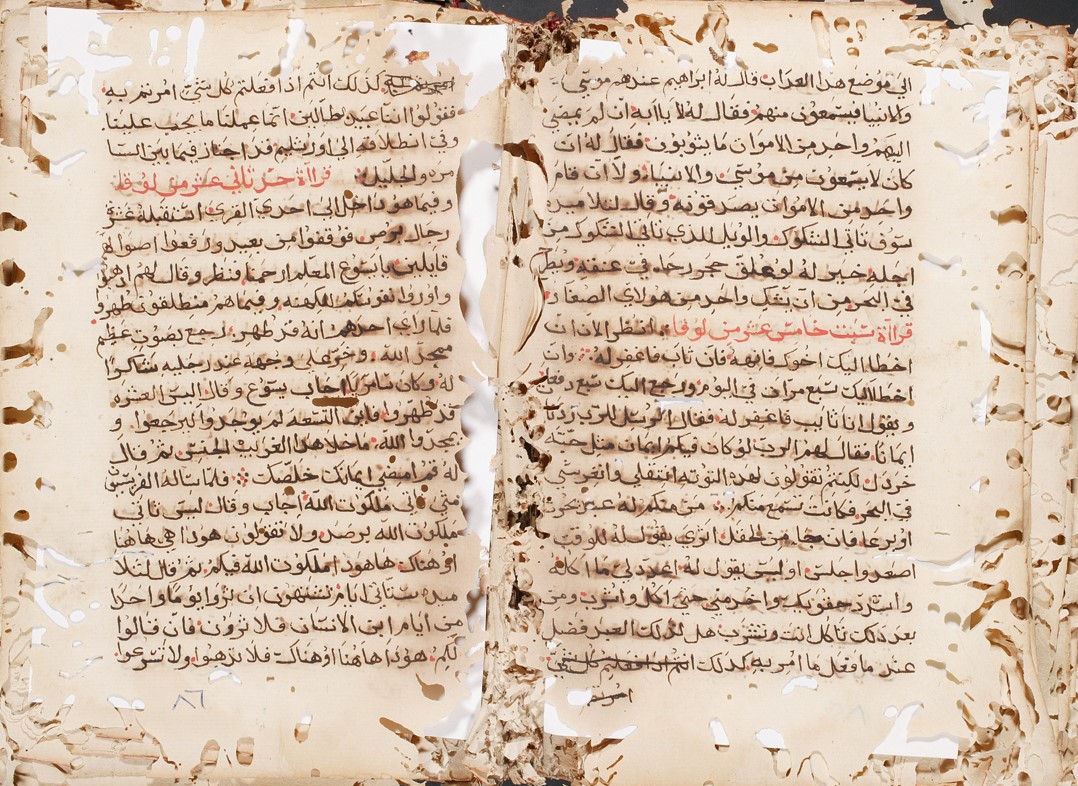 الى موضع هدا العداب قال له ابراهيم عندهم موسى
والانبيا فيسمعون منهم فقال له لا ياابه ان لم يمضى
اليهم واحد من الاموات ما يتوبون فقال له ان
كان لا يسمعون من موسى والانبياء ولا ان قام
واحد من الاموات يصدقونه وقال لتلاميده
سوف تاتى الشكوك والويل للذي تاتى الشكوك من
اجله خير له لو علق حجر رحا في عنقه
في البحر من ان يشك واحد من هولاى الصغار
قراآة سبت خامس عشر من لوقا انظر الان ان
اخطا اليك اخوك فانهه فان تاب فاغفر له وان
اخطا اليك سبع مرات في اليوم ورجع اليك سبع دفعات
ويقول انا تايب فاغفر له فقال الرسل للرب زدنا
ايمانا فقال لهم الرب لو كان فيكم ايمان مثل حبة
خردل لكنتم تقولون لهده التوته انتقلي وانغرسى
في البحر فكانت تسمع منكم من منكم له عبد يحرث
او يرعا فان جا من الحقل اترى يقول له للوقت
اصعد واجلس او ليس يقول له اعدد لى ما اكله
واشدد حقويك واخدمنى حتى اكل واشرب ومن
بعد دلك تاكل انت وتشرب هل لدلك العبد فضل
عند ما فعل ما امر به كدلك انتم ادا فعلتم كل شى
امرتم
كدلك انتم ادا فعلتم كل شى امرتم به
فقولوا اننا عبيد بطالين انما عملنا ما يجب علينا
وفى انطلاقه الى اورشليم قد اجتاز فيما بين السا
مره والجليل قراآة حد تانى عشر من لوقا
وفيما هو داخل الى احدى القرى استقبله عشرة
رجال برص فوقفوا من بعيد ورفعوا اصواتهم
قايلين يا يسوع المعلم ارحمنا فنظر وقال لهم ادهبوا
واوروا نفوسكم للكهنه وفيما هم منطلقون طهروا
فلما راى احدهم انه قد طهر رجع بصوت عظيم
يمجد الله وخر على وجهه عند رجليه شاكرا
له وكان سامريا اجاب يسوع وقال اليس العشره
قد طهروا فاين التسعه لم يوجدوا ليرجعوا و
يمجدوا الله ما خلا هدا الغريب الجنس ثم قال
له قم امضى ايمانك خلصك فلما ساله الفريسيون
متى تاتى ملكوت الله اجاب وقال ليس تاتى
ملكوت الله برصد ولا تقولون هودا هي هاهنا
او هناك هاهودا ملكوت الله فيكم ثم قال لتلا
ميده ستاتى ايام تشتهون ان تروا يوما واحدا
من ايام ابن الانسان فلا ترون فان قالوا
لكم هودا هاهنا او هناك فلا تدهبوا ولا تسرعوا
٨٦